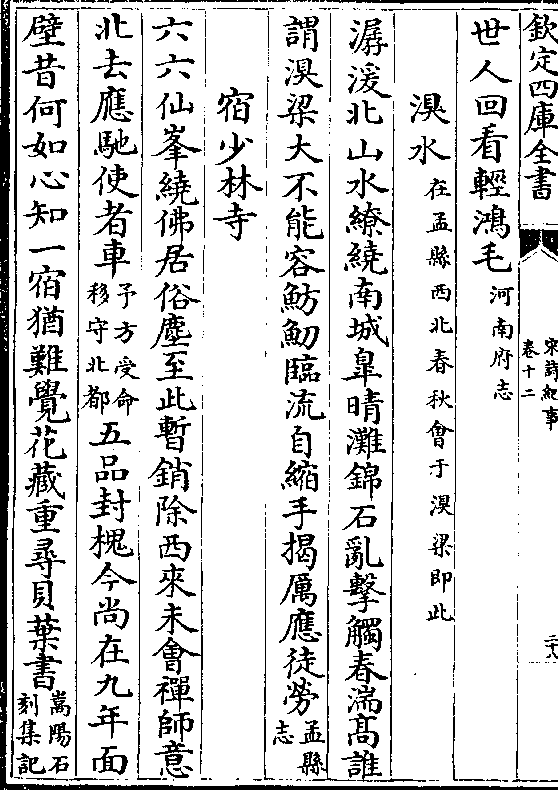 欽定四庫全書
宋詩紀事
卷十二
二十八
世人回看輕鴻毛河南府志
湨水在孟縣西北春秋會于湨梁即此
潺湲北山水繚繞南城臯晴灘錦石亂擊觸春湍髙誰
謂湨梁大不能容魴魛臨流自縮手揭厲應徒勞孟縣志
宿少林寺
六六仙峯繞佛居俗塵至此暫銷除西來未㑹禪師意
北去應馳使者車予方受命移守北都五品封槐今尚在九年面
壁昔何如心知一宿猶難覺花藏重尋貝葉書嵩陽石刻集記